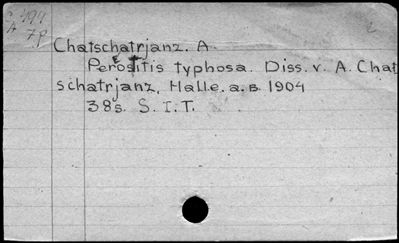 Chatschatrjanz. A.
Perostitis typhosa. Diss. v. A. Chat
schatrjanz, Halle. a. s. 1904
38s. S. I. T.